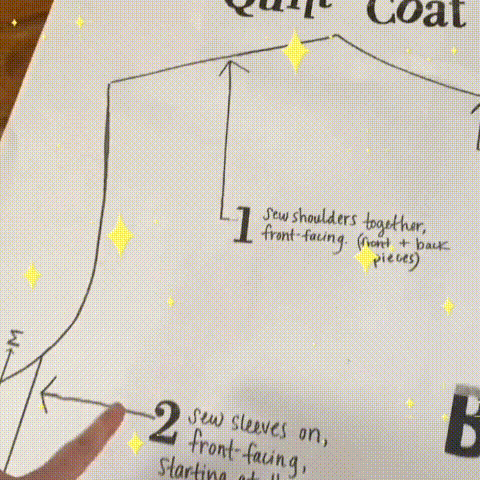 Quilt Coat
1 sew shoulders together,
front-facing. (front + back
pieces)
2 sew sleeves on,
front-facing,
starting at
B